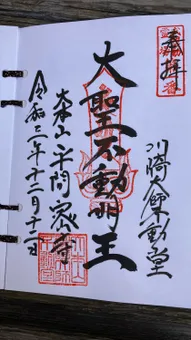 奉拝
川崎大師不動堂
大聖不動明王
大本山平間密寺
令和三年十二月十二日